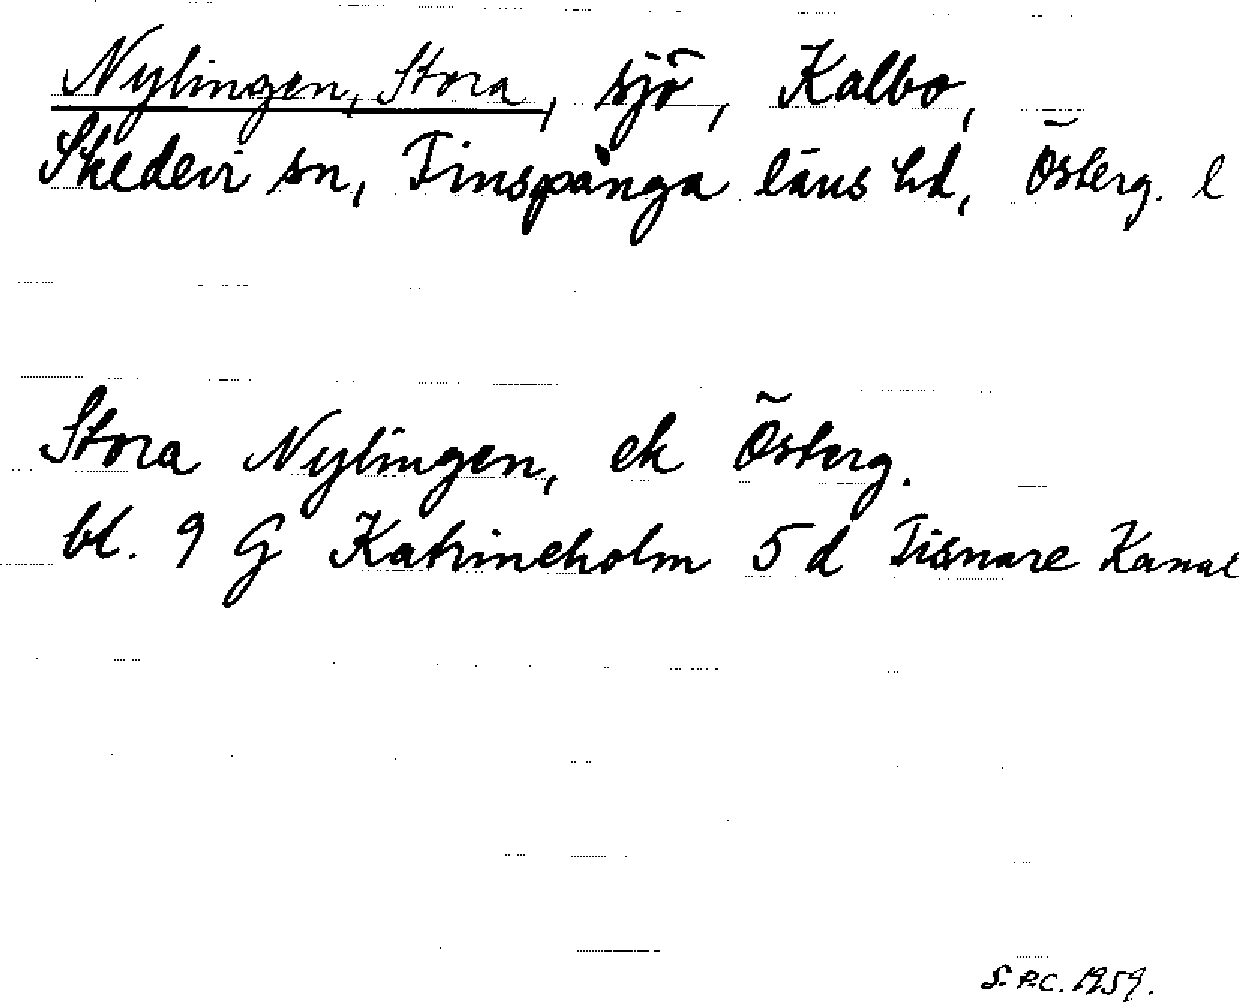 Nylingen, Stora, sjö, Kalbo,
Skedevi sn, Finspånga läns hd, Österg. l
Stora Nylingen, ek Österg.
bl. 9 G Katrineholm 5 d Tisnare Kanal
S. P.C. 1959.